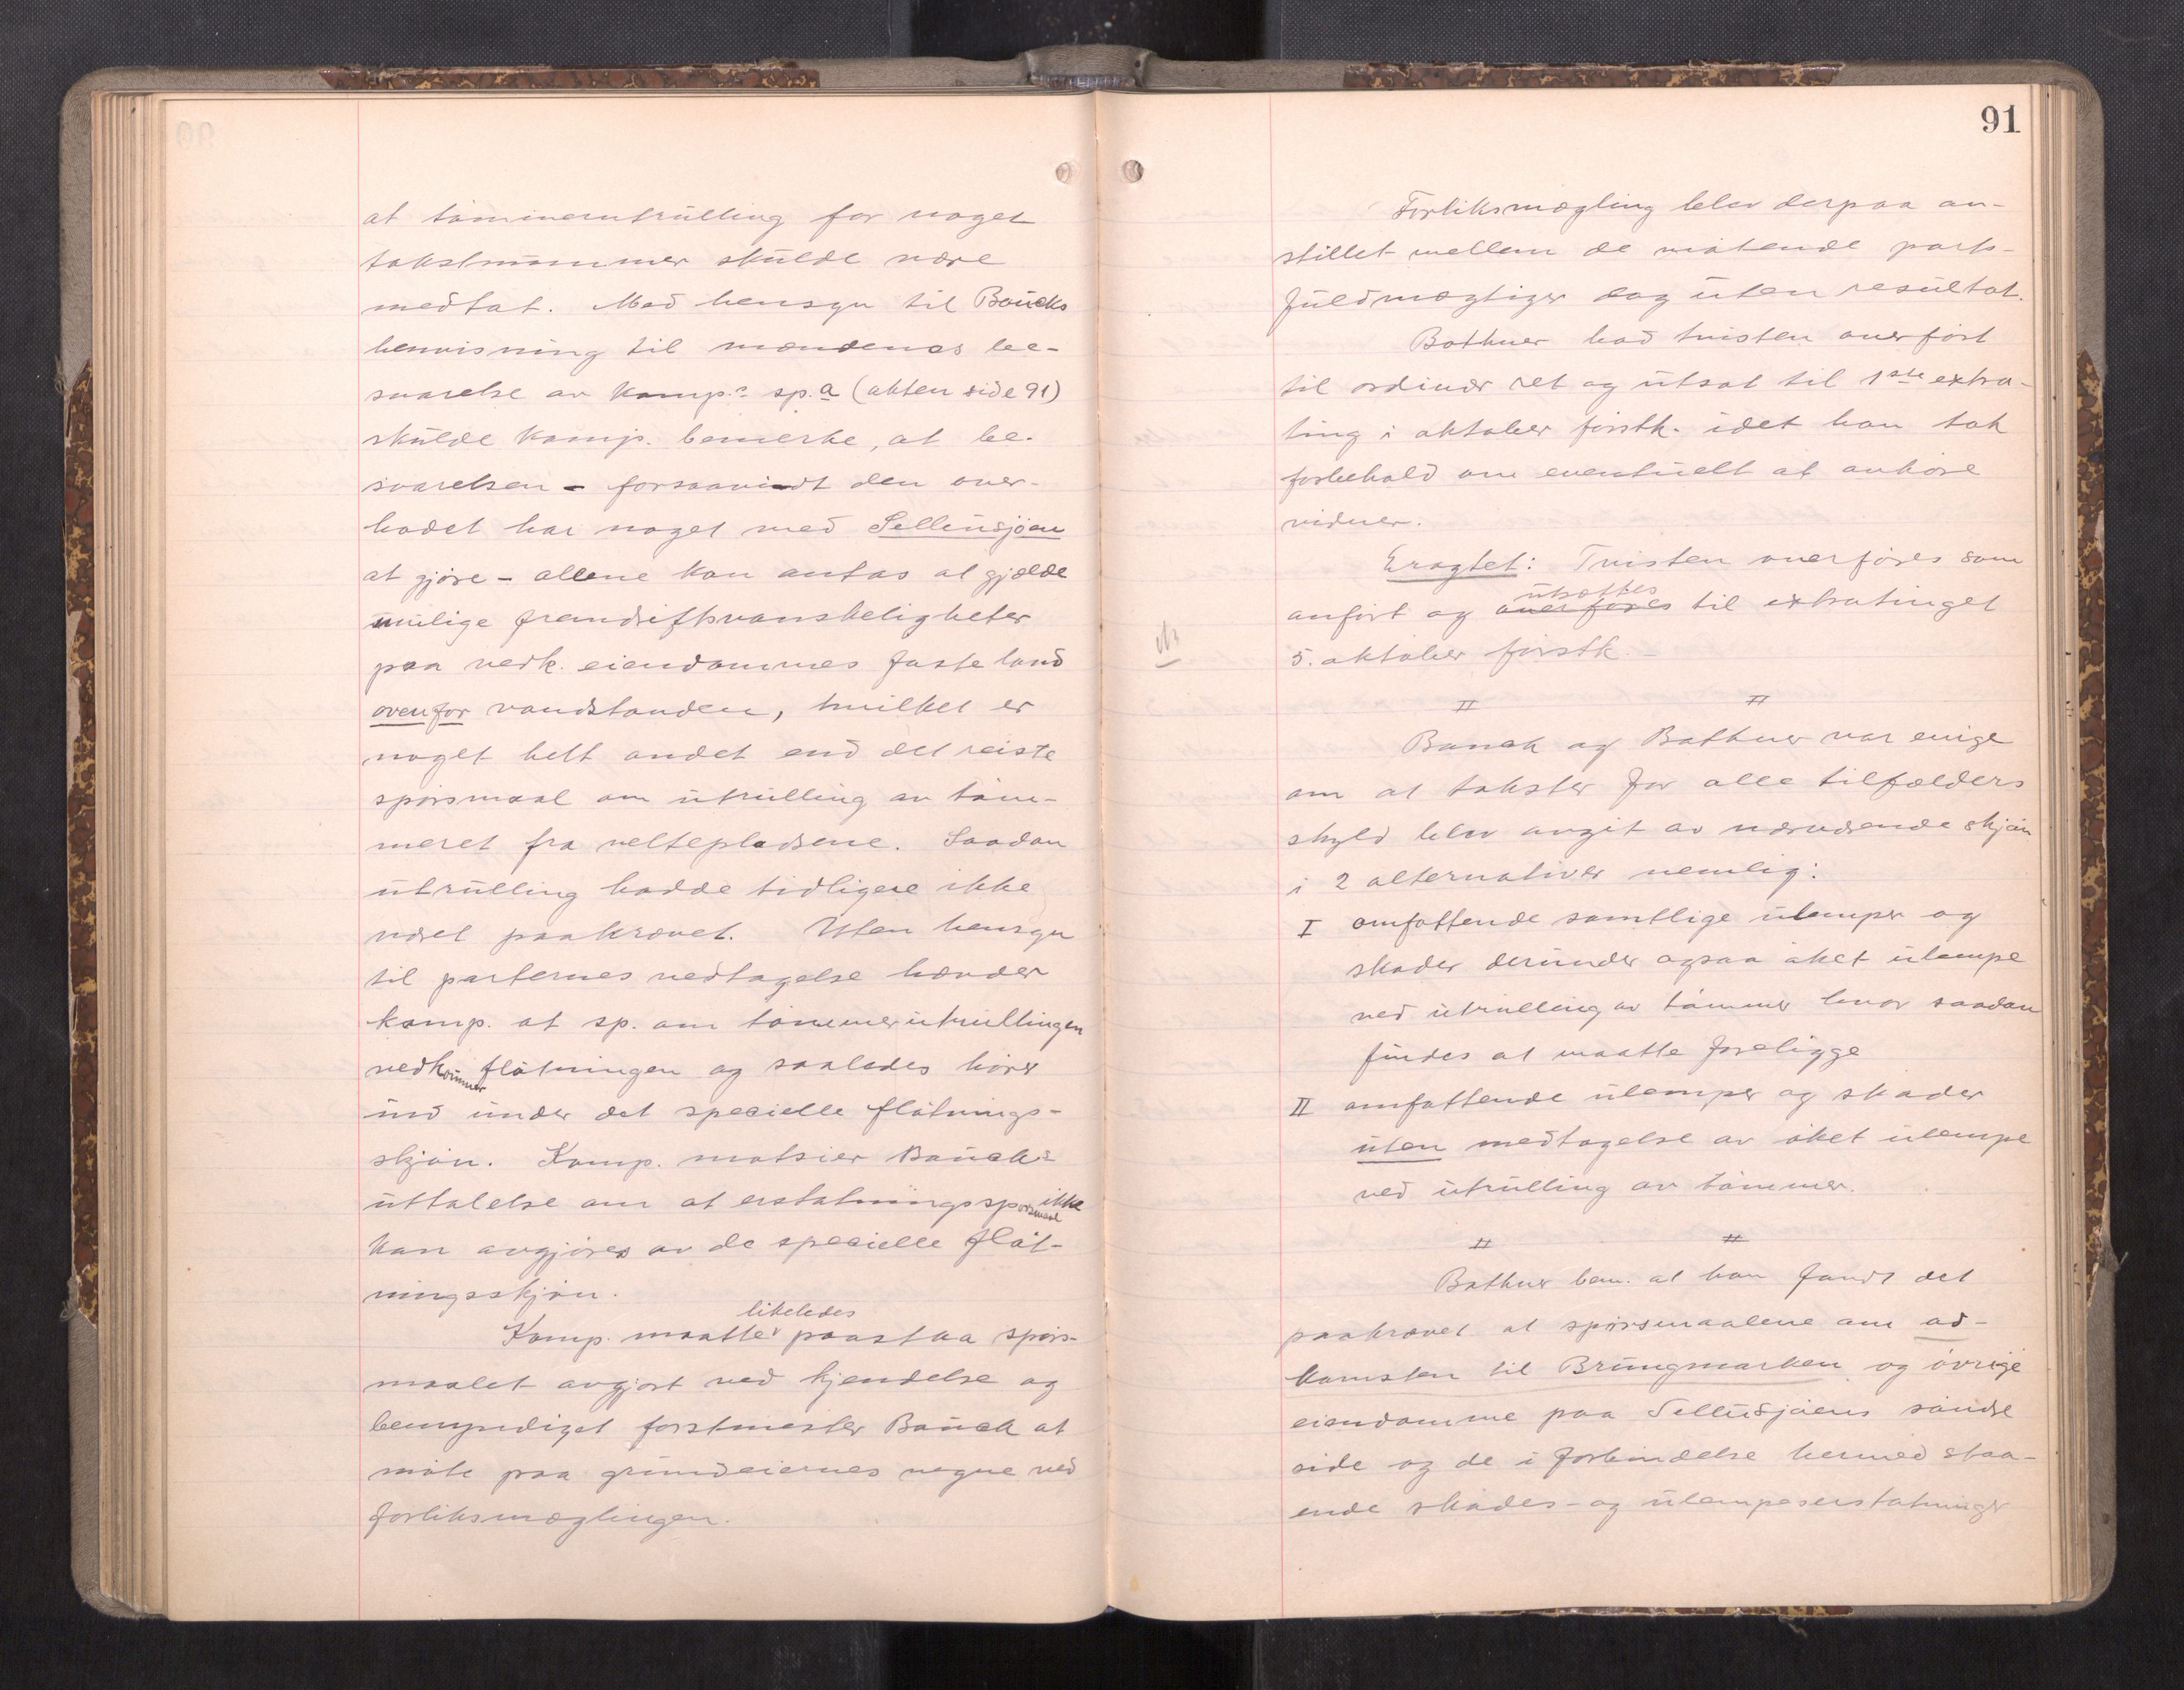 at tømmerutrulling for noget
takstnummer skulde være
medtat. Med hensyn til Baucks
henvisning til mændenes be-
svarelse av komp.s sp. a (akten side 91)
skulde komp. bemerke, at be-
svarelsen - forsaavidt den over-
hodet har noget med Sellensjøen
at gjøre - allene kan antas at gjælde
mulige fremdriftsvanskeligheter
paa vedk. eiendommes faste land
ovenfor vandstanden, hvilket er
noget helt andet end det reiste
spørsmaal om utrulling av tøm-
meret fra veltepladsene. Saadan
utrulling hadde tidligere ikke
været paakrævet. Uten hensyn
til parternes vedtagelse hævder
komp. at sp. om tømmerutrullingen
vedkommer fløtningen og saaledes hører
ind under det specielle fløtnings-
skjøn. Komp. motsier Baucks
uttalelse om at erstatningsspørsmaal ikke
kan avgjøres av de specielle fløt-
ningsskjøn.
Komp. maatte likeledes paastaa spørs-
maalet avgjort ved kjendelse og
bemyndiget forstmester Bauck at
møte paa grundeiernes vegne ved
forliksmæglingen.
91
Forliksmægling blev derpaa an-
stillet mellem de møtende parts-
fuldmægtiger dog uten resultat.
Bothner bad tvisten overført
til ordinær ret og utsat til 1ste extra-
ting i oktober førstk. idet han tok
forbehold om eventuelt at anhøre
vidner.
Eragtet: Tvisten overføres som
anført og overføres utsættes til extratinget
5. oktober førstk.
Bauck og Bothner var enige
om at takster for alle tilfælders
skyld blev avgit av nærværende skjøn
i 2 alternativer nemlig:
I omfattende samtlige ulemper og
skader derunder ogsaa øket ulempe
ved utrulling av tømmer hvor saadan
findes at maatte foreligge
II omfattende ulemper og skader
uten medtagelse av øket ulempe
ved utrulling av tømmer.
Bothner bem. at han fandt det
paakrævet at spørsmaalene om ad-
komsten til Brungmarken og øvrige
eiendomme paa Sellusjøens søndre
side og de i forbindelse hermed staa-
ende skades- og ulempeserstatninger